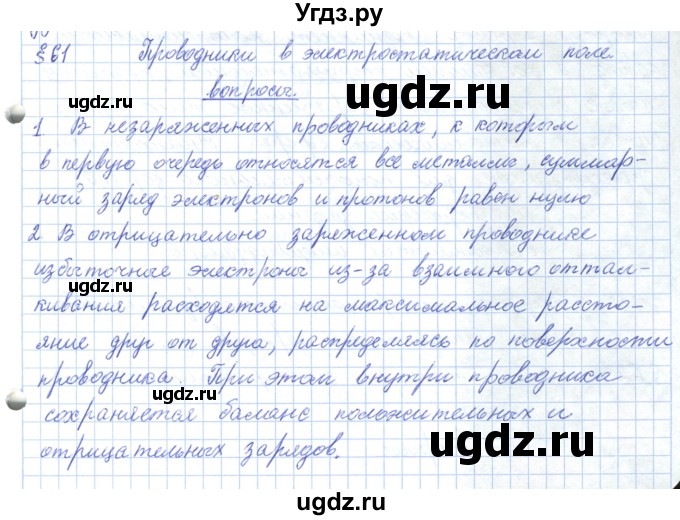 Угдз.ру
§61 Проводники в электростатическом поле
ugdz.ru ugdz.ru
вопросы.
ugdz.ru
1 В незаряженных проводниках, к которым
в первую очередь относятся все металлы, суммар-
ный заряд электронов и протонов равен нулю
ugdz.ru ugdz.ru
2 В отрицательно заряженном проводнике
избыточные электроны из-за взаимного оттал-
ugdz.ru
кивания расходятся на максимальное расстоя-
яние друг от друга, распределяясь по поверхности
ugdz.ru ugdz.ru
проводника. При этом внутри проводника
сохраняется баланс положительных и
ugdz.ru
отрицательных зарядов.
ugdz.ru
ugdz.ru